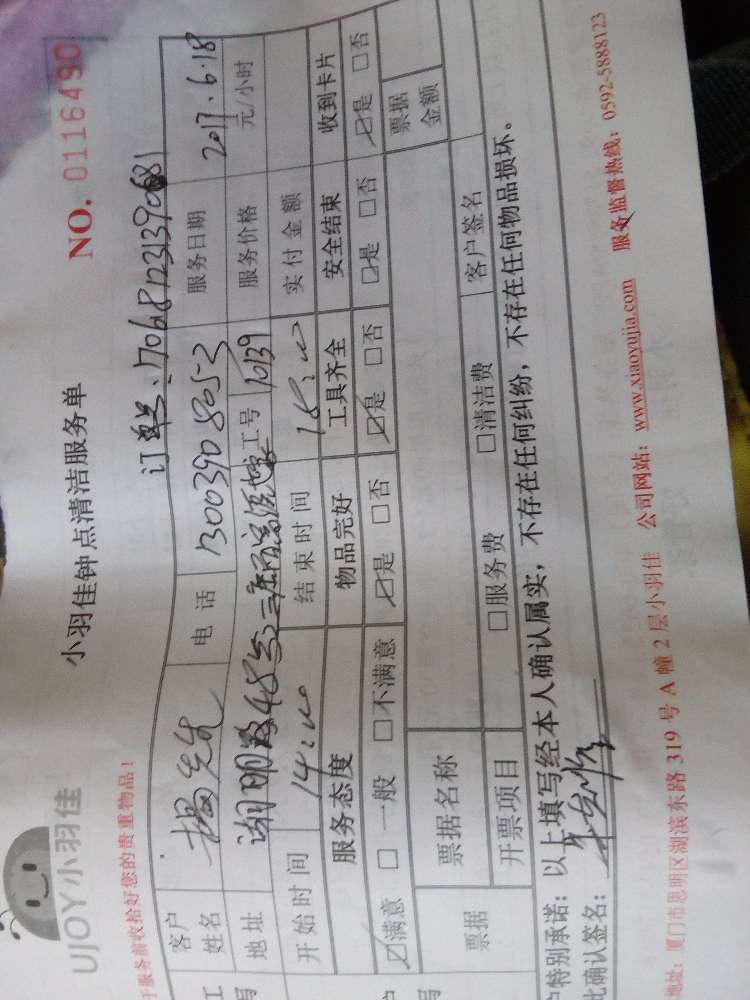 UJOY小羽佳
小羽佳钟点清洁服务单
NO. 0116490
于服务前收拾好您的贵重物品！
订单号：
客户姓名 杨先生 电话 服务日期 2017.6.18
地址 湖明路48号 工号 10139 服务价格 元/小时
开始时间 14:00 结束时间 18:00 实付金额
服务态度 物品完好 工具齐全 安全结束 收到卡片
☑满意 □一般 □不满意 ☑是 □否 ☑是 □否 □是 □否 ☑是 □否
票据 票据名称 票据金额
开票项目 □服务费 □清洁费 客户签名
户特别承诺：以上填写经本人确认属实，不存在任何纠纷，不存在任何物品损坏。
此确认签名：
地址：厦门市思明区湖滨东路 319 号 A 幢 2 层小羽佳 公司网站：www.xiaoyujia.com 服务监督热线：0592-5888123